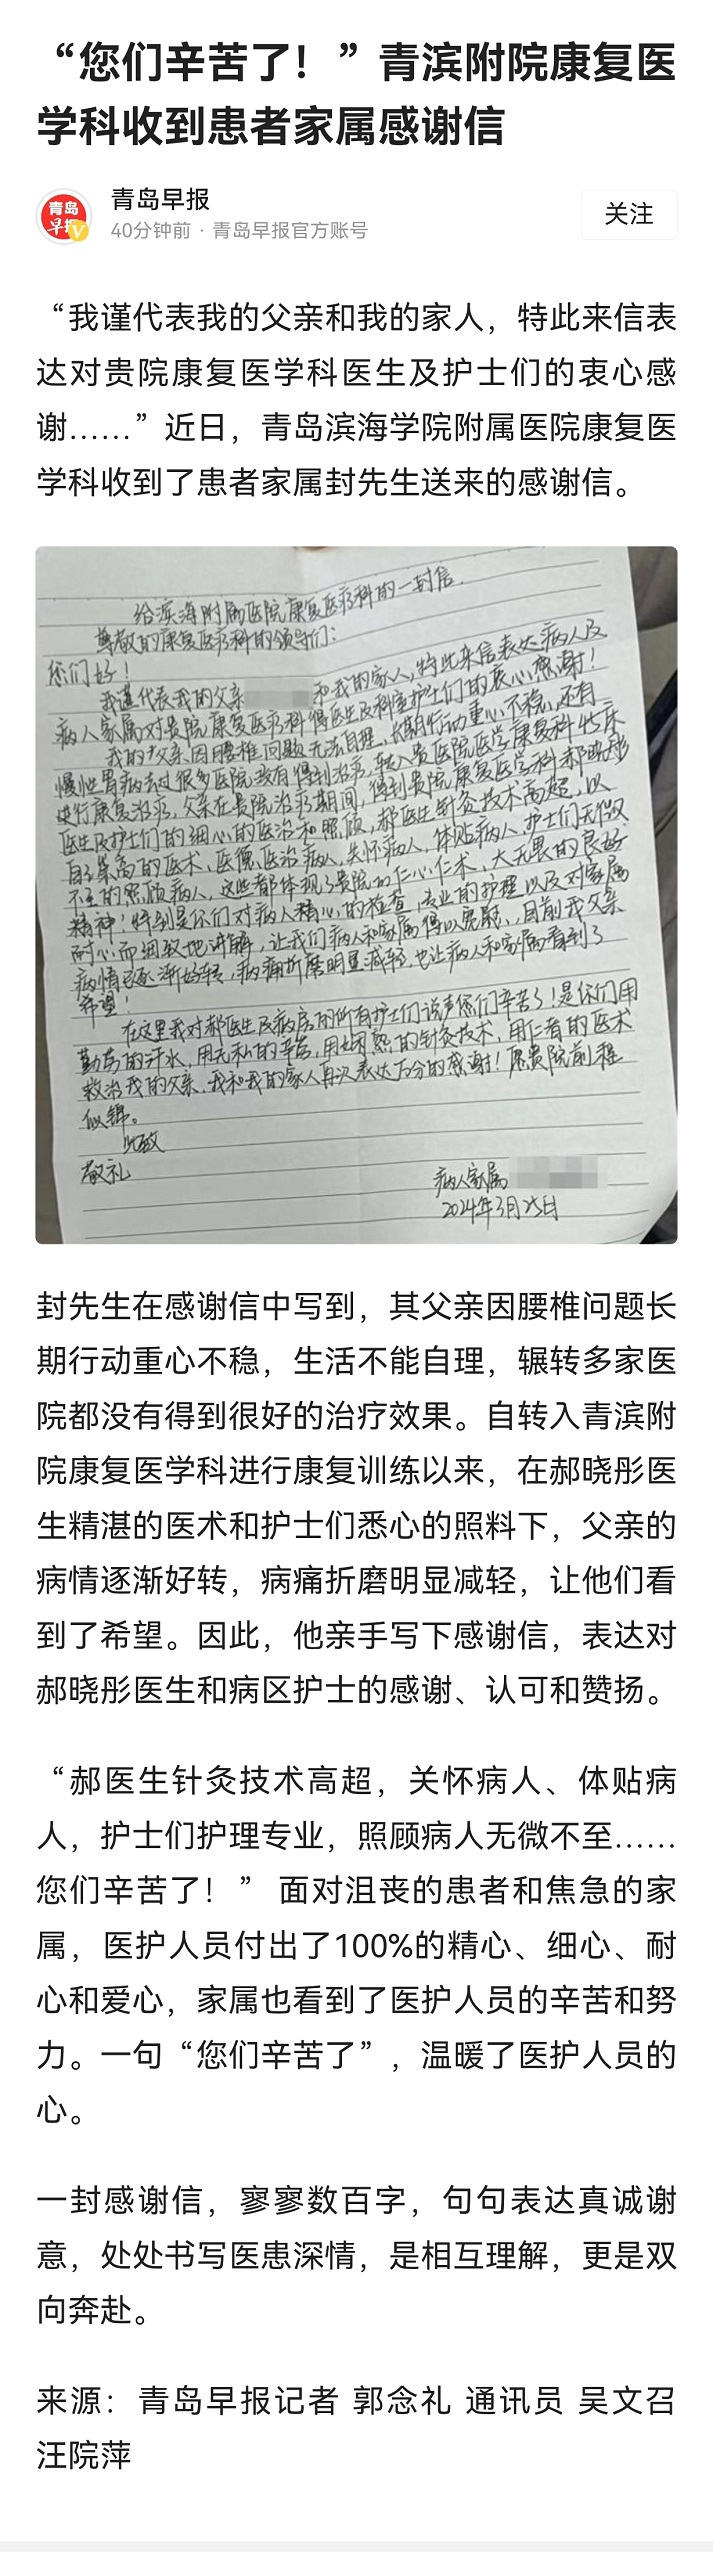 “您们辛苦了！”青滨附院康复医
学科收到患者家属感谢信
青岛
早报
V
青岛早报
40分钟前 · 青岛早报官方账号
关注
“我谨代表我的父亲和我的家人，特此来信表
达对贵院康复医学科医生及护士们的衷心感
谢……”近日，青岛滨海学院附属医院康复医
学科收到了患者家属封先生送来的感谢信。
给滨海附属医院康复医疗科的一封信.
尊敬的康复医疗科的领导们:
你们好！
我谨代表我的父亲 和我的家人,特此来信表达病人及
病人家属对贵院康复医疗科 医生及科室护士们的衷心感谢！
我的父亲因腰椎问题无法自理,长期行动重心不稳,还有
慢性胃病去过很多医院没有得到治疗,转入贵医院医学康复科45床
进行康复治疗,父亲在贵院治疗期间,得到贵院康复医学科郝晓彤
医生及护士们的细心的医治和照顾,郝医生针灸技术高超,以
自己最高的医术、医德,医治病人,关怀病人,体贴病人,护士们无微
不至的照顾病人,这些都体现了贵院的仁心仁术,大无畏的良好
精神！特别是你们对病人精心的检查,专业的护理以及对家属
耐心而细致地讲解,让我们病人和家属得以宽慰、目前我父亲
病情已逐渐好转,病痛折磨明显减轻,也让病人和家属看到了
希望！
在这里我对郝医生及病房的所有护士们说声你们辛苦了！是你们用
勤劳的汗水,用无私的辛苦,用娴熟的针灸技术,用仁者的医术
救治我的父亲.我和我的家人再次表达万分的感谢！愿贵院前程
似锦。
此致
敬礼
病人家属
2024年3月25日
封先生在感谢信中写到，其父亲因腰椎问题长
期行动重心不稳，生活不能自理，辗转多家医
院都没有得到很好的治疗效果。自转入青滨附
院康复医学科进行康复训练以来，在郝晓彤医
生精湛的医术和护士们悉心的照料下，父亲的
病情逐渐好转，病痛折磨明显减轻，让他们看
到了希望。因此，他亲手写下感谢信，表达对
郝晓彤医生和病区护士的感谢、认可和赞扬。
“郝医生针灸技术高超，关怀病人、体贴病
人，护士们护理专业，照顾病人无微不至……
您们辛苦了！” 面对沮丧的患者和焦急的家
属，医护人员付出了100%的精心、细心、耐
心和爱心，家属也看到了医护人员的辛苦和努
力。一句“您们辛苦了”，温暖了医护人员的
心。
一封感谢信，寥寥数百字，句句表达真诚谢
意，处处书写医患深情，是相互理解，更是双
向奔赴。
来源：青岛早报记者 郭念礼 通讯员 吴文召
汪院萍